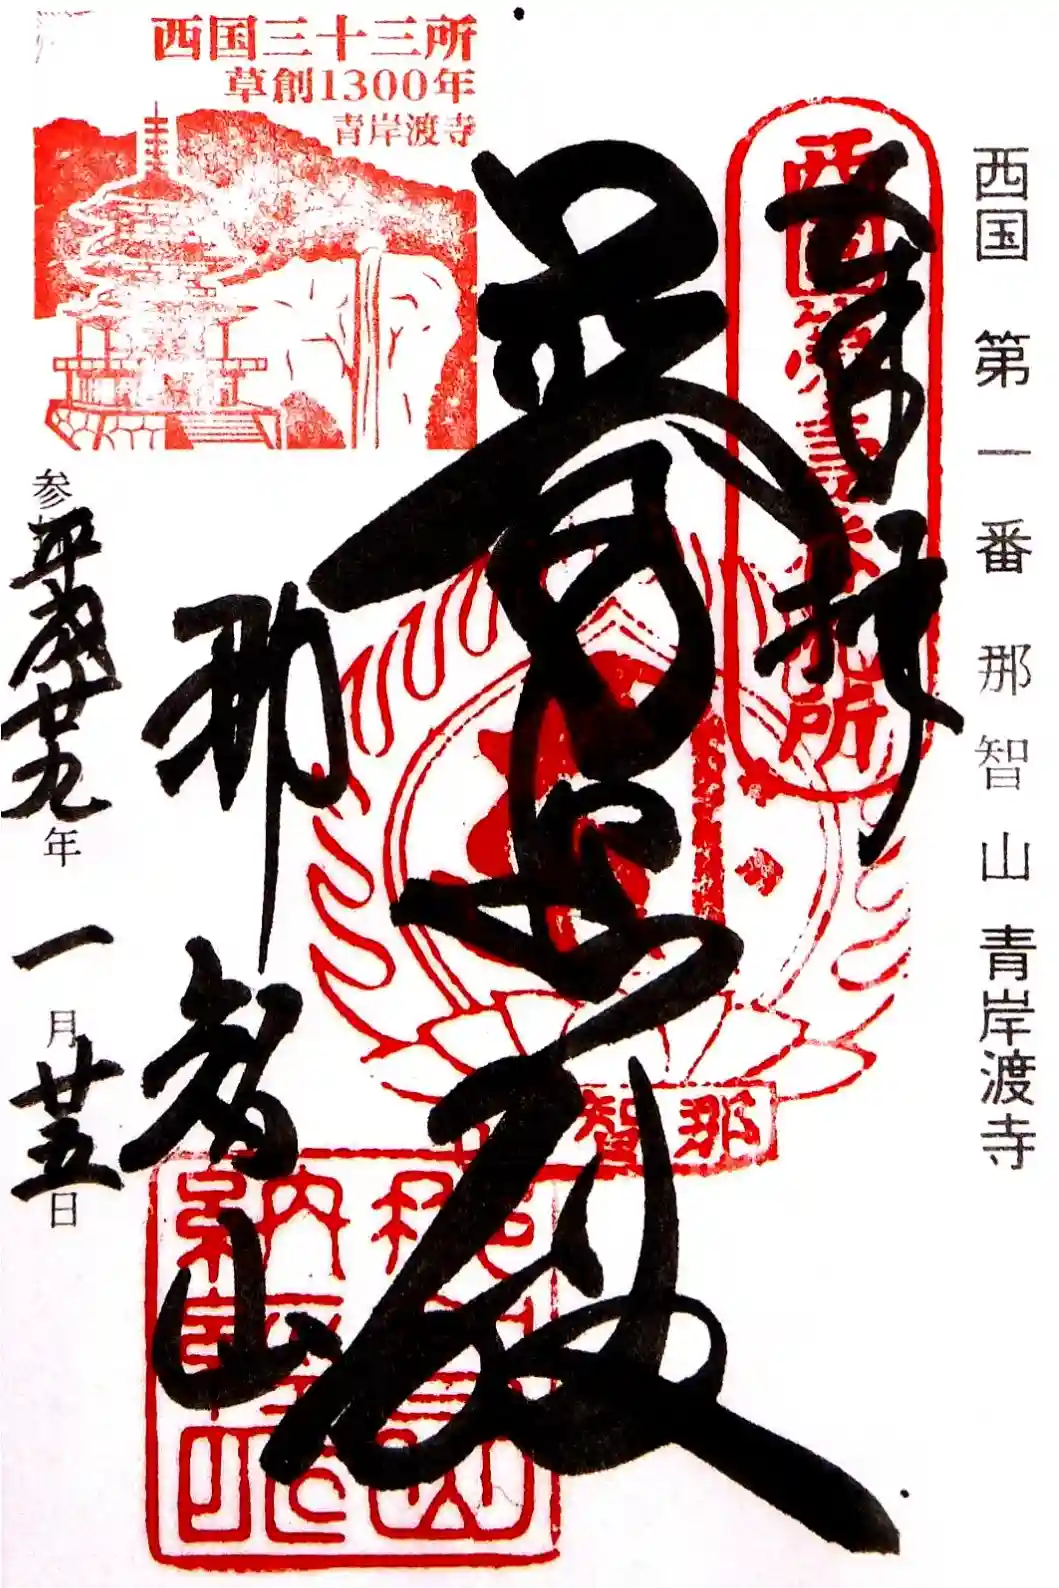 西国 第 一 番 那 智 山 青岸渡寺
奉拝
西国第壱番札所
普照殿
那智山
那智
西国三十三所
草創1300年
青岸渡寺
参
平成廿九年
一月
廿五日